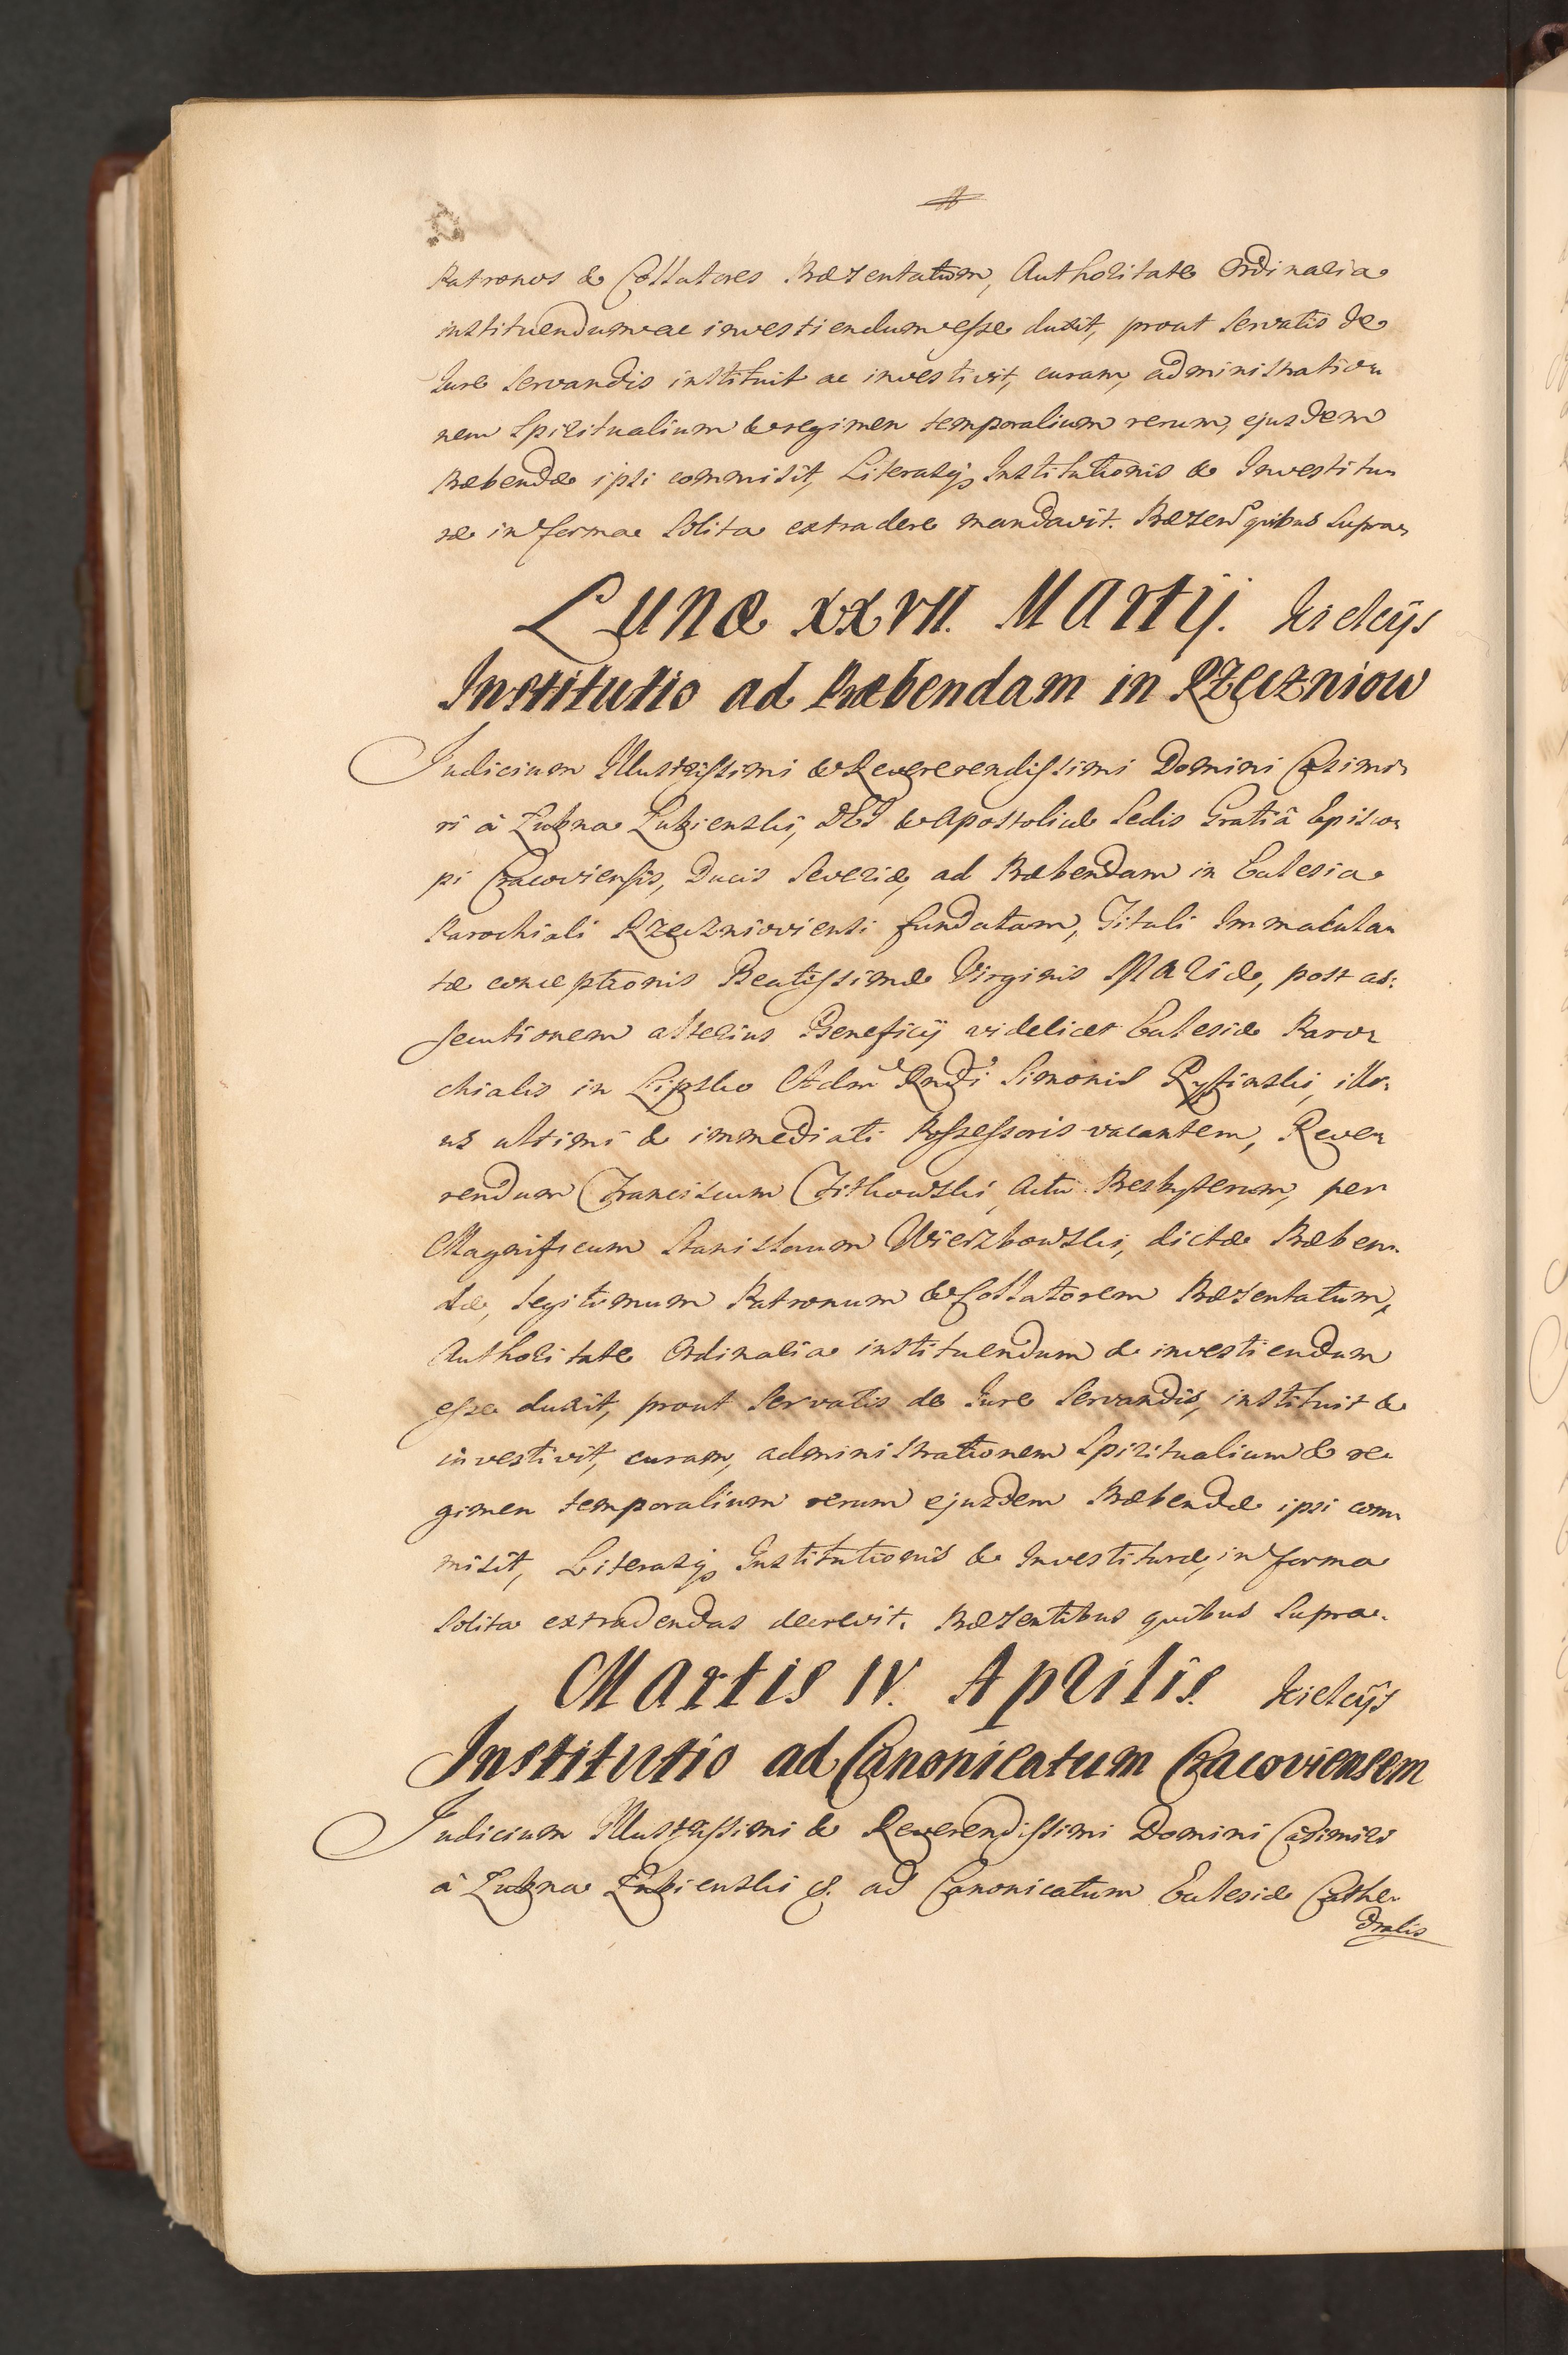 Patronos & Collatores Præsentatum, Authoritate Ordinaria
instituendum ac investiendum esse duxit, prout servatis de
Jure servandis instituit ac investivit, curam, administratio-
nem Spiritualium & regimen temporalium rerum, ejusdem
Præbendæ ipsi commisit, Literasq; Institutionis & Investitu-
ræ in forma solita extradere mandavit. Præsen. quibus supra.
Lunæ XXVII. Martij. Kielcijs
Institutio ad Præbendam in Rzeczniow
Judicium Illustrissimi & Revererendissimi Domini Casimi-
ri â Łubna Łubienski, DEI & Apostolicæ Sedis Gratiâ Episco-
pi Cracoviensis, Ducis Severiæ, ad Præbendam in Ecclesia
Parochiali Rzecznioviensi fundatam, Tituli Immacula-
tæ conceptionis Beatissimæ Virginis MARIÆ, post as-
secutionem alterius Beneficij videlicet Ecclesiæ Paro-
chialis in Lipsko Adm Rndi Simonis illi-
us ultimi & immediati Possessoris vacantem, Reve-
rendum Franciscum Fitkowski, actu Presbyterum, per
Magnificum Stanislaum Wierzbowski, dictæ Præben-
dæ, legitimum Patronum & Collatorem Præsentatum,
Authoritate Ordinaria instituendum & investiendum
esse duxit, prout servatis de Jure servandis, instituit &
investivit, curam, administrationem Spiritualium & re-
gimen temporalium rerum ejusdem Præbendæ ipsi com-
misit, Literasq; Institutionis & Investituræ, in forma
solita extradendas decrevit. Præsentibus quibus supra.
Martis IV. Aprilis. Kielcijs
Institutio ad Canonicatum Cracoviensem
Judicium Illustrissimi & Reverendissimi Domini Casimiri
â Łubna Łubienski &. ad Canonicatum Ecclesiæ Cathe-
dralis